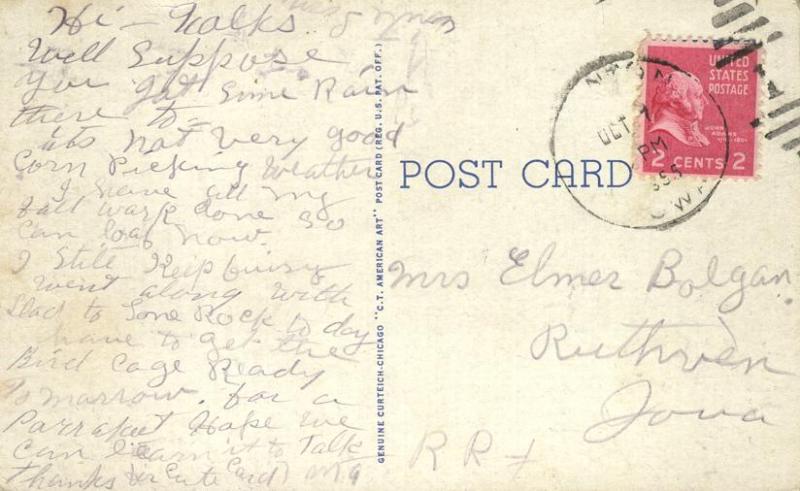 Hi - Folks.
Well Suppose
you gat Sime Rain
there to -
its not very good
Corn Picking Weather
I have all my
fall wark done so
can loaf now.
I Still Keep buisy
went along with
Slad to Sone Rock to day
have to get the
Bird Cage Ready
Tomarrow. for a
Parrakeet Hope we
can learn it to Talk
Thanks for Cute Card
GENUINE CURTEICH-CHICAGO "C.T. AMERICAN ART" POST CARD (REG. U.S. PAT. OFF.)
POST CARD
OCT 7
PM
UNITED
STATES
POSTAGE
JOHN
ADAMS
2 CENTS 2
Mrs Elmer Bolgan.
Ruthven
Iowa
RR 1